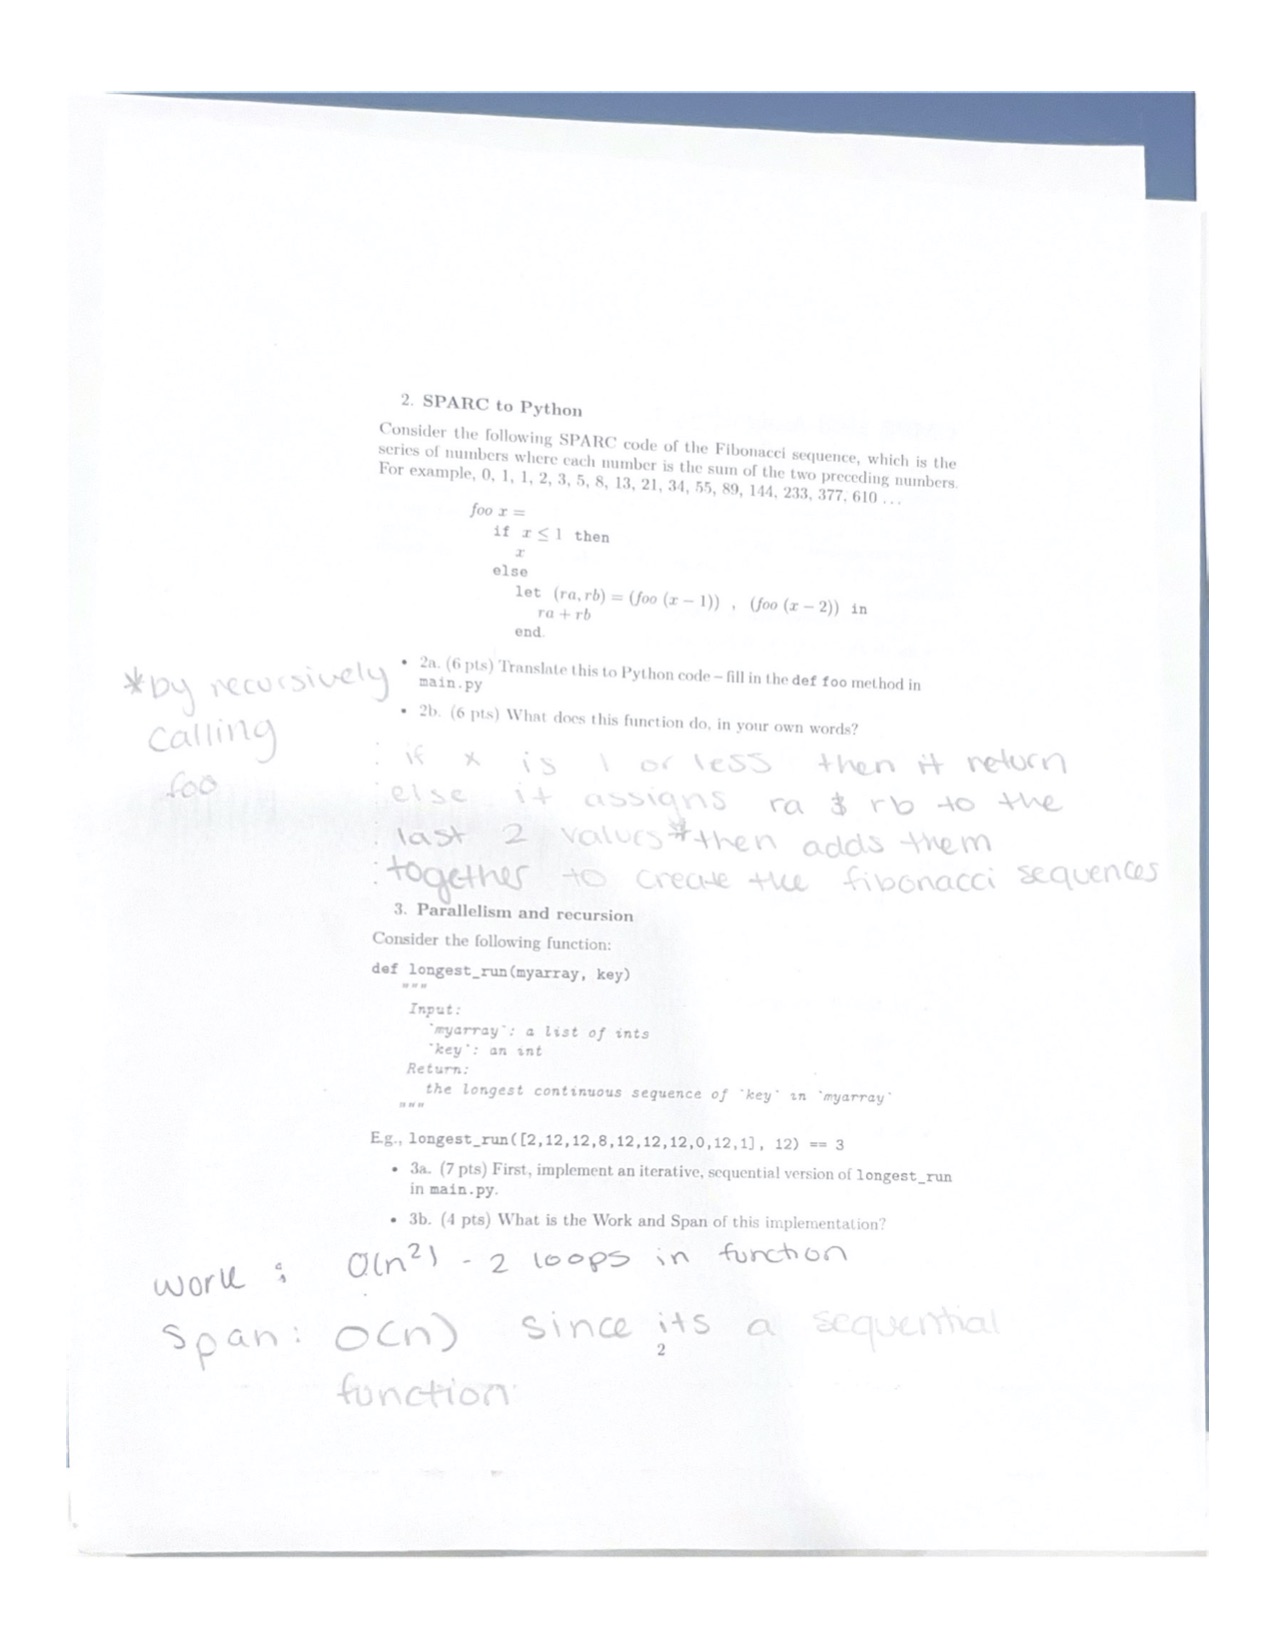 2. SPARC to Python
Consider the following SPARC code of the Fibonacci sequence, which is the
series of numbers where each number is the sum of the two preceding numbers.
For example, 0, 1, 1, 2, 3, 5, 8, 13, 21, 34, 55, 89, 144, 233, 377, 610 ...
foo x =
if x ≤ 1 then
x
else
let (ra, rb) = (foo (x − 1)) , (foo (x − 2)) in
ra + rb
end.
• 2a. (6 pts) Translate this to Python code – fill in the def foo method in
main.py
• 2b. (6 pts) What does this function do, in your own words?
*by recursively
calling
foo
if x is 1 or less then it return
else it assigns ra & rb to the
last 2 values * then adds them
together to create the fibonacci sequences
3. Parallelism and recursion
Consider the following function:
def longest_run(myarray, key)
"""
Input:
`myarray`: a list of ints
`key`: an int
Return:
the longest continuous sequence of `key` in `myarray`
"""
E.g., longest_run([2,12,12,8,12,12,12,0,12,1], 12) == 3
• 3a. (7 pts) First, implement an iterative, sequential version of longest_run
in main.py.
• 3b. (4 pts) What is the Work and Span of this implementation?
work : O(n²) - 2 loops in function
Span: O(n) since its a sequential
2
function